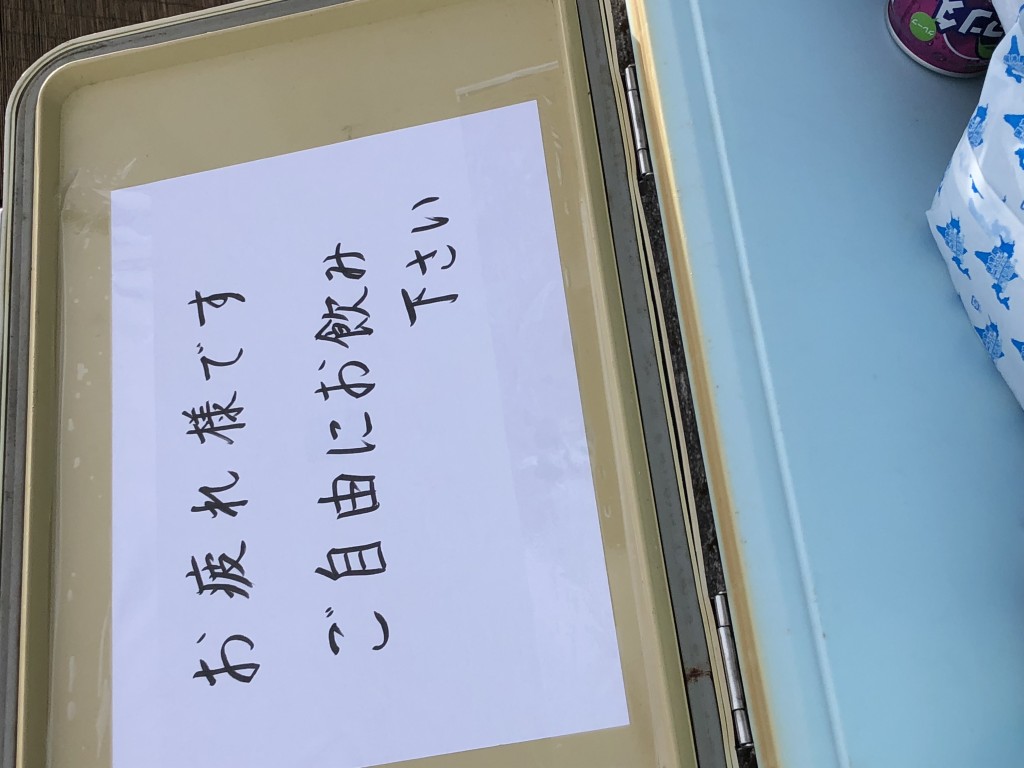 お疲れ様です
ご自由にお飲み
下さい